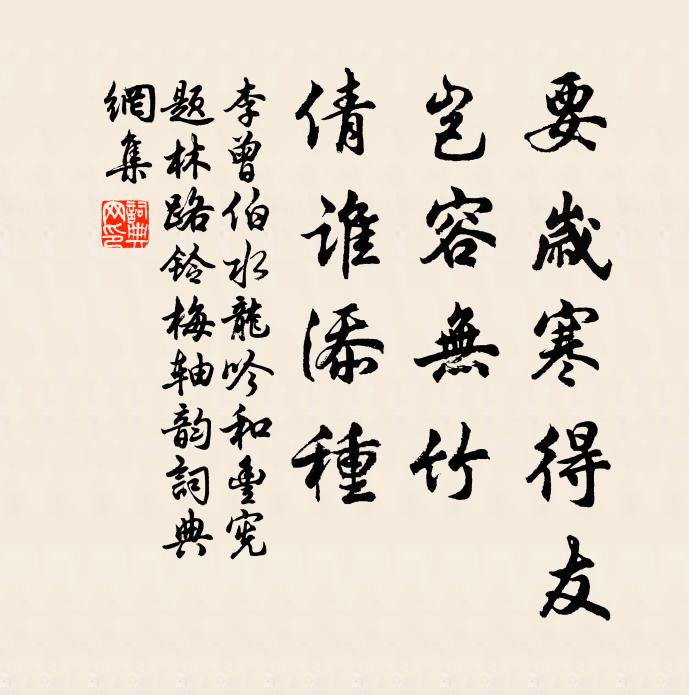 要歲寒得友
豈容無竹
倩誰添種
李曾伯水龍吟和豊宪
题林路鈴梅轴韵詞典
網集
詞典
网印